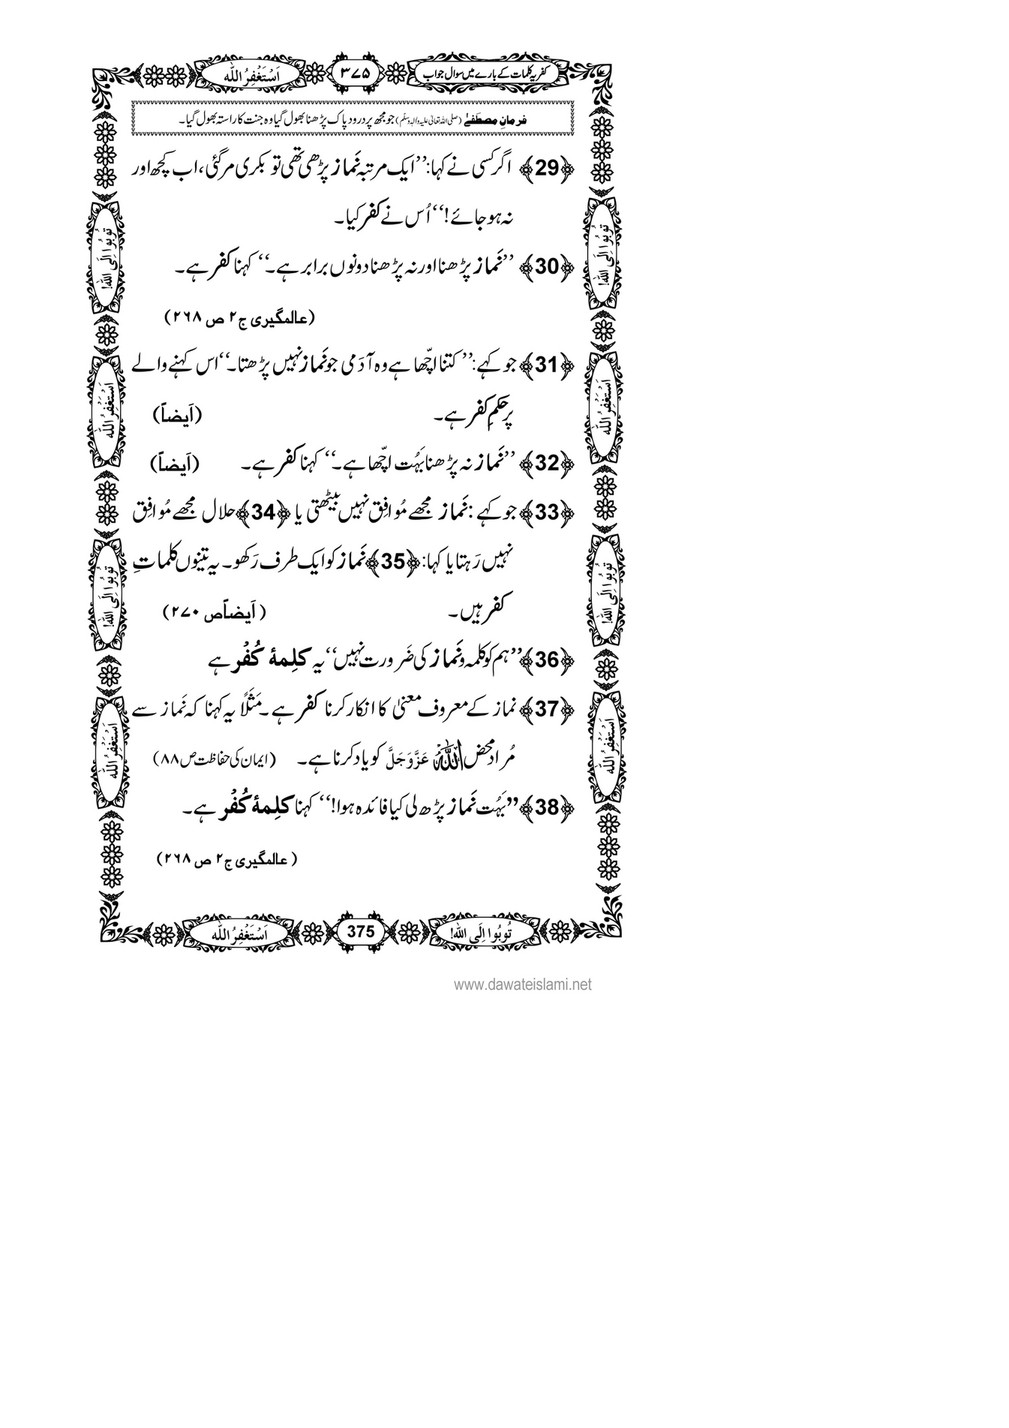 کفریہ کلمات کے بارے میں سوال جواب ۳۷۵ اَسْتَغْفِرُ اللّٰہ
فرمانِ مصطفےٰ (صلی اللہ تعالیٰ علیہ والہ وسلم) جو مجھ پر درود پاک پڑھنا بھول گیا وہ جنت کا راستہ بھول گیا۔
﴿29﴾ اگر کسی نے کہا: ’’ایک مرتبہ نَماز پڑھی تھی تو بکری مر گئی، اب کچھ اور
نہ ہو جائے!‘‘ اُس نے کفر کیا۔
﴿30﴾ ’’نَماز پڑھنا اور نہ پڑھنا دونوں برابر ہے۔‘‘ کہنا کفر ہے۔
(عالمگیری ج۲ ص ۲۶۸)
﴿31﴾ جو کہے: ’’کتنا اچّھا ہے وہ آدَمی جو نَماز نہیں پڑھتا۔‘‘ اس کہنے والے
پر حکمِ کفر ہے۔ (اَیضاً)
﴿32﴾ ’’نَماز نہ پڑھنا بَہُت اچّھا ہے۔‘‘ کہنا کفر ہے۔ (اَیضاً)
﴿33﴾ جو کہے: نَماز مجھے مُوافِق نہیں بیٹھتی یا ﴿34﴾ حلال مجھے مُوافِق
نہیں رَہتا یا کہا: ﴿35﴾ نَماز کو ایک طرف رَکھو۔ یہ تینوں کلماتِ
کفر ہیں۔ (اَیضاً ص ۲۷۰)
﴿36﴾ ’’ہم کو کلمہ و نَماز کی ضَرورت نہیں‘‘ یہ کلِمۂ کُفْر ہے
﴿37﴾ نماز کے معروف معنیٰ کا انکار کرنا کفر ہے۔ مَثَلاً یہ کہنا کہ نَماز سے
مُراد محض اللہ عَزَّوَجَلَّ کو یاد کرنا ہے۔ (ایمان کی حفاظت ص ۸۸)
﴿38﴾ ’’بَہُت نَماز پڑھ لی کیا فائدہ ہوا!‘‘ کہنا کلِمۂ کُفْر ہے۔
(عالمگیری ج۲ ص ۲۶۸)
تُوبُوا اِلَی اللّٰہ!
اَسْتَغْفِرُ اللّٰہ
تُوبُوا اِلَی اللّٰہ!
اَسْتَغْفِرُ اللّٰہ
تُوبُوا اِلَی اللّٰہ!
اَسْتَغْفِرُ اللّٰہ
تُوبُوا اِلَی اللّٰہ!
اَسْتَغْفِرُ اللّٰہ
تُوبُوا اِلَی اللّٰہ! 375 اَسْتَغْفِرُ اللّٰہ
www.dawateislami.net